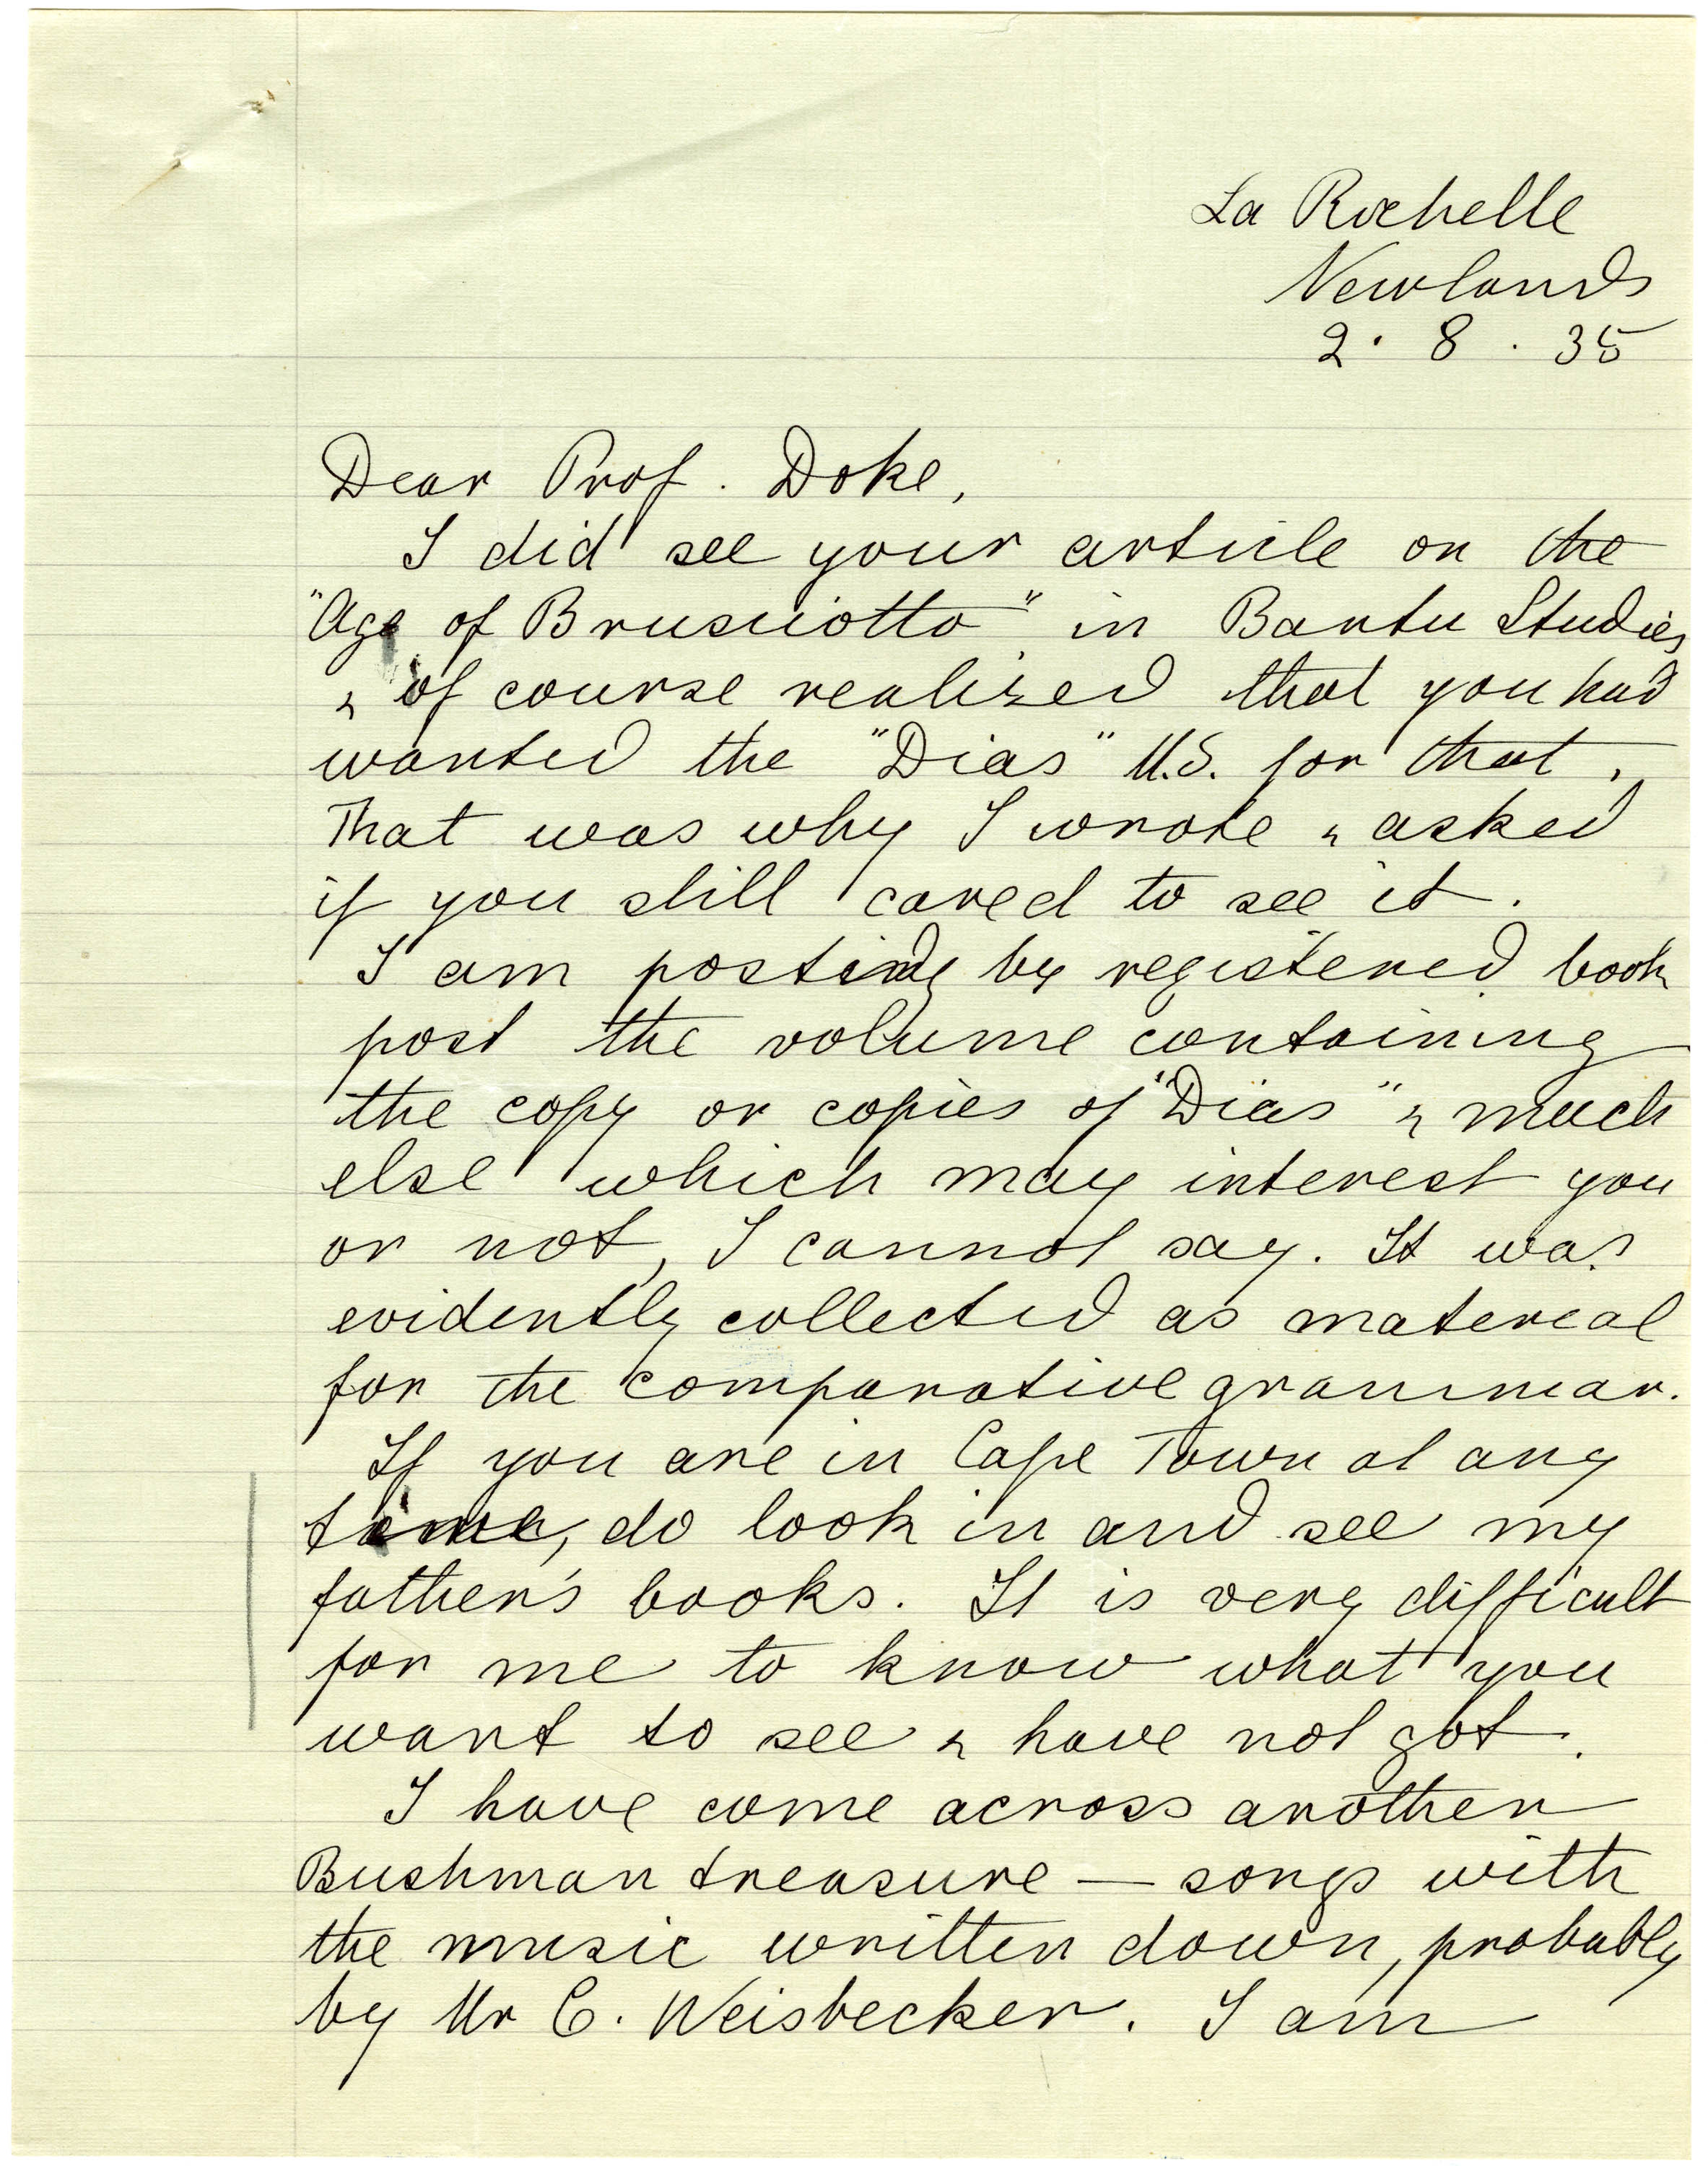 La Rochelle
Newlands
2 . 8 . 35
Dear Prof. Doke,
I did see your article on the
"Age of Brusciotto" in Bantu Studies
& of course realized that you had
wanted the "Dias" M.S. for that.
That was why I wrote & asked
if you still cared to see it.
I am posting by registered book
post the volume containing
the copy or copies of "Dias" & much
else which may interest you
or not, I cannot say. It was
evidently collected as material
for the comparative grammar.
If you are in Cape Town at any
time, do look in and see my
father's books. It is very difficult
for me to know what you
want to see & have not got.
I have come across another
Bushman treasure — songs with
the music written down, probably
by Mr C. Weisbecker. I am